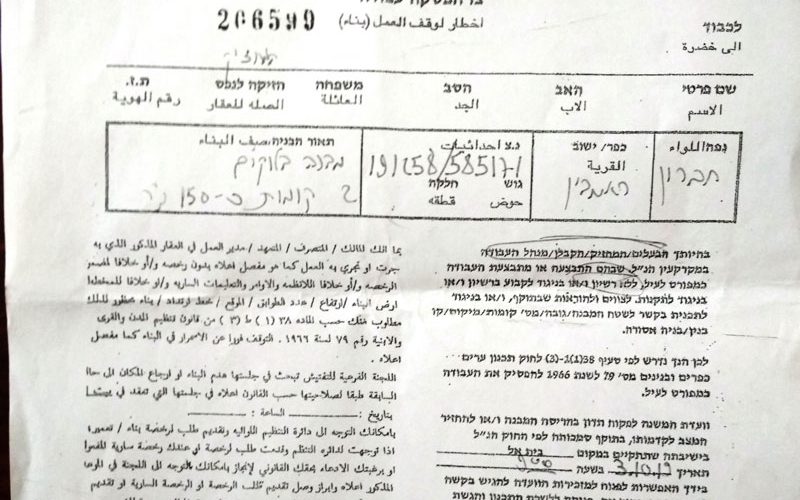 צו הפסקת עבודה
206599
اخطار لوقف العمل (بناء)
לכבוד
الى حضرة
המחזיק
שם פרטי
האב
הסב
משפחה
חזיקה לנכס
ת.ז.
الاسم
الاب
الجد
العائلة
الصله للعقار
رقم الهوية
נפה اللواء
כפר/ ישוב
נ.צ احداثيات
תאור הבניה/صف البناء
חברון
القرية
191258/585171
מבנה בלוקים
גוש
חלקה
حوض
قطعه
2 קומות כ-150 מ"ר
בהיותך הבעלים/המחזיק/הקבלן/מנהל העבודה
במקרקעין הנ"ל שבהם התבצעה או מתבצעת העבודה
כמפורט לעיל, ללא רשיון ו/או בניגוד לקבוע ברשיון ו/או
בניגוד לתקנות, לצווים ולהוראות שבתוקף, ו/או בניגוד
לתכנית בקשר לשטח המבנה/גובה/מס' קומות/מיקום/קו
בנין/בניה אסורה.
לכן הנך נדרש לפי סעיף 38(1)-(3) לחוק תכנון ערים
כפרים ובנינים מס' 79 לשנת 1966 להפסיק את העבודה
כמפורט לעיל.
וועדת המשנה לפקוח תדון בהריסת המבנה ו/או להחזיר
המצב לקדמותו, בתוקף סמכותה לפי החוק הנ"ל
בישיבתה שתתקיים במקום בית אל
תאריך 3.10.13 בשעה
בידך האפשרות לפנות למזכירות הוועדה להגיש בקשה
بما انك المالك / المتصرف / المتعهد / مدير العمل في العقار المذكور الذي به
جرت او تجري به العمل كما هو مفصل اعلاه بدون رخصه و/او خلافا
الرخصه و/او خلافا للانظمه والاوامر والتعليمات الساريه و/او خلافا للمخطط
ارض البناء /ارتفاع / عدد الطوابق / الموقع / خط ارتداد / بناء محظور لذلك
مطلوب منك حسب الماده ٣٨ (١) ط (٣) من قانون تنظيم المدن والقرى
والابنية رقم ٧٩ لسنة ١٩٦٦ . التوقف فورا عن الاستمرار في البناء كما مفصل
اعلاه .
اللجنة الفرعية للتفتيش تبحث في جلستها هدم البناء او ارجاع المكان الى حالته
السابقة طبقا لصلاحيتها حسب القانون اعلاه في جلستها التي تعقد في
بتاريخ : الساعة :
بامكانك التوجه الى دائرة التنظيم اللوائيه وتقديم طلب لرخصة بناء /
اذا توجهت لدائرة التنظيم وقدمت طلب لرخصة او عندك رخصة سارية المفعول
او برغبتك الادعاء بحقك القانوني لإنجاز بامكانك التوجه الى اللجنة في
المذكور اعلاه وابراز وصل تقديم طلب الرخصة او الرخصة السارية او تقديم